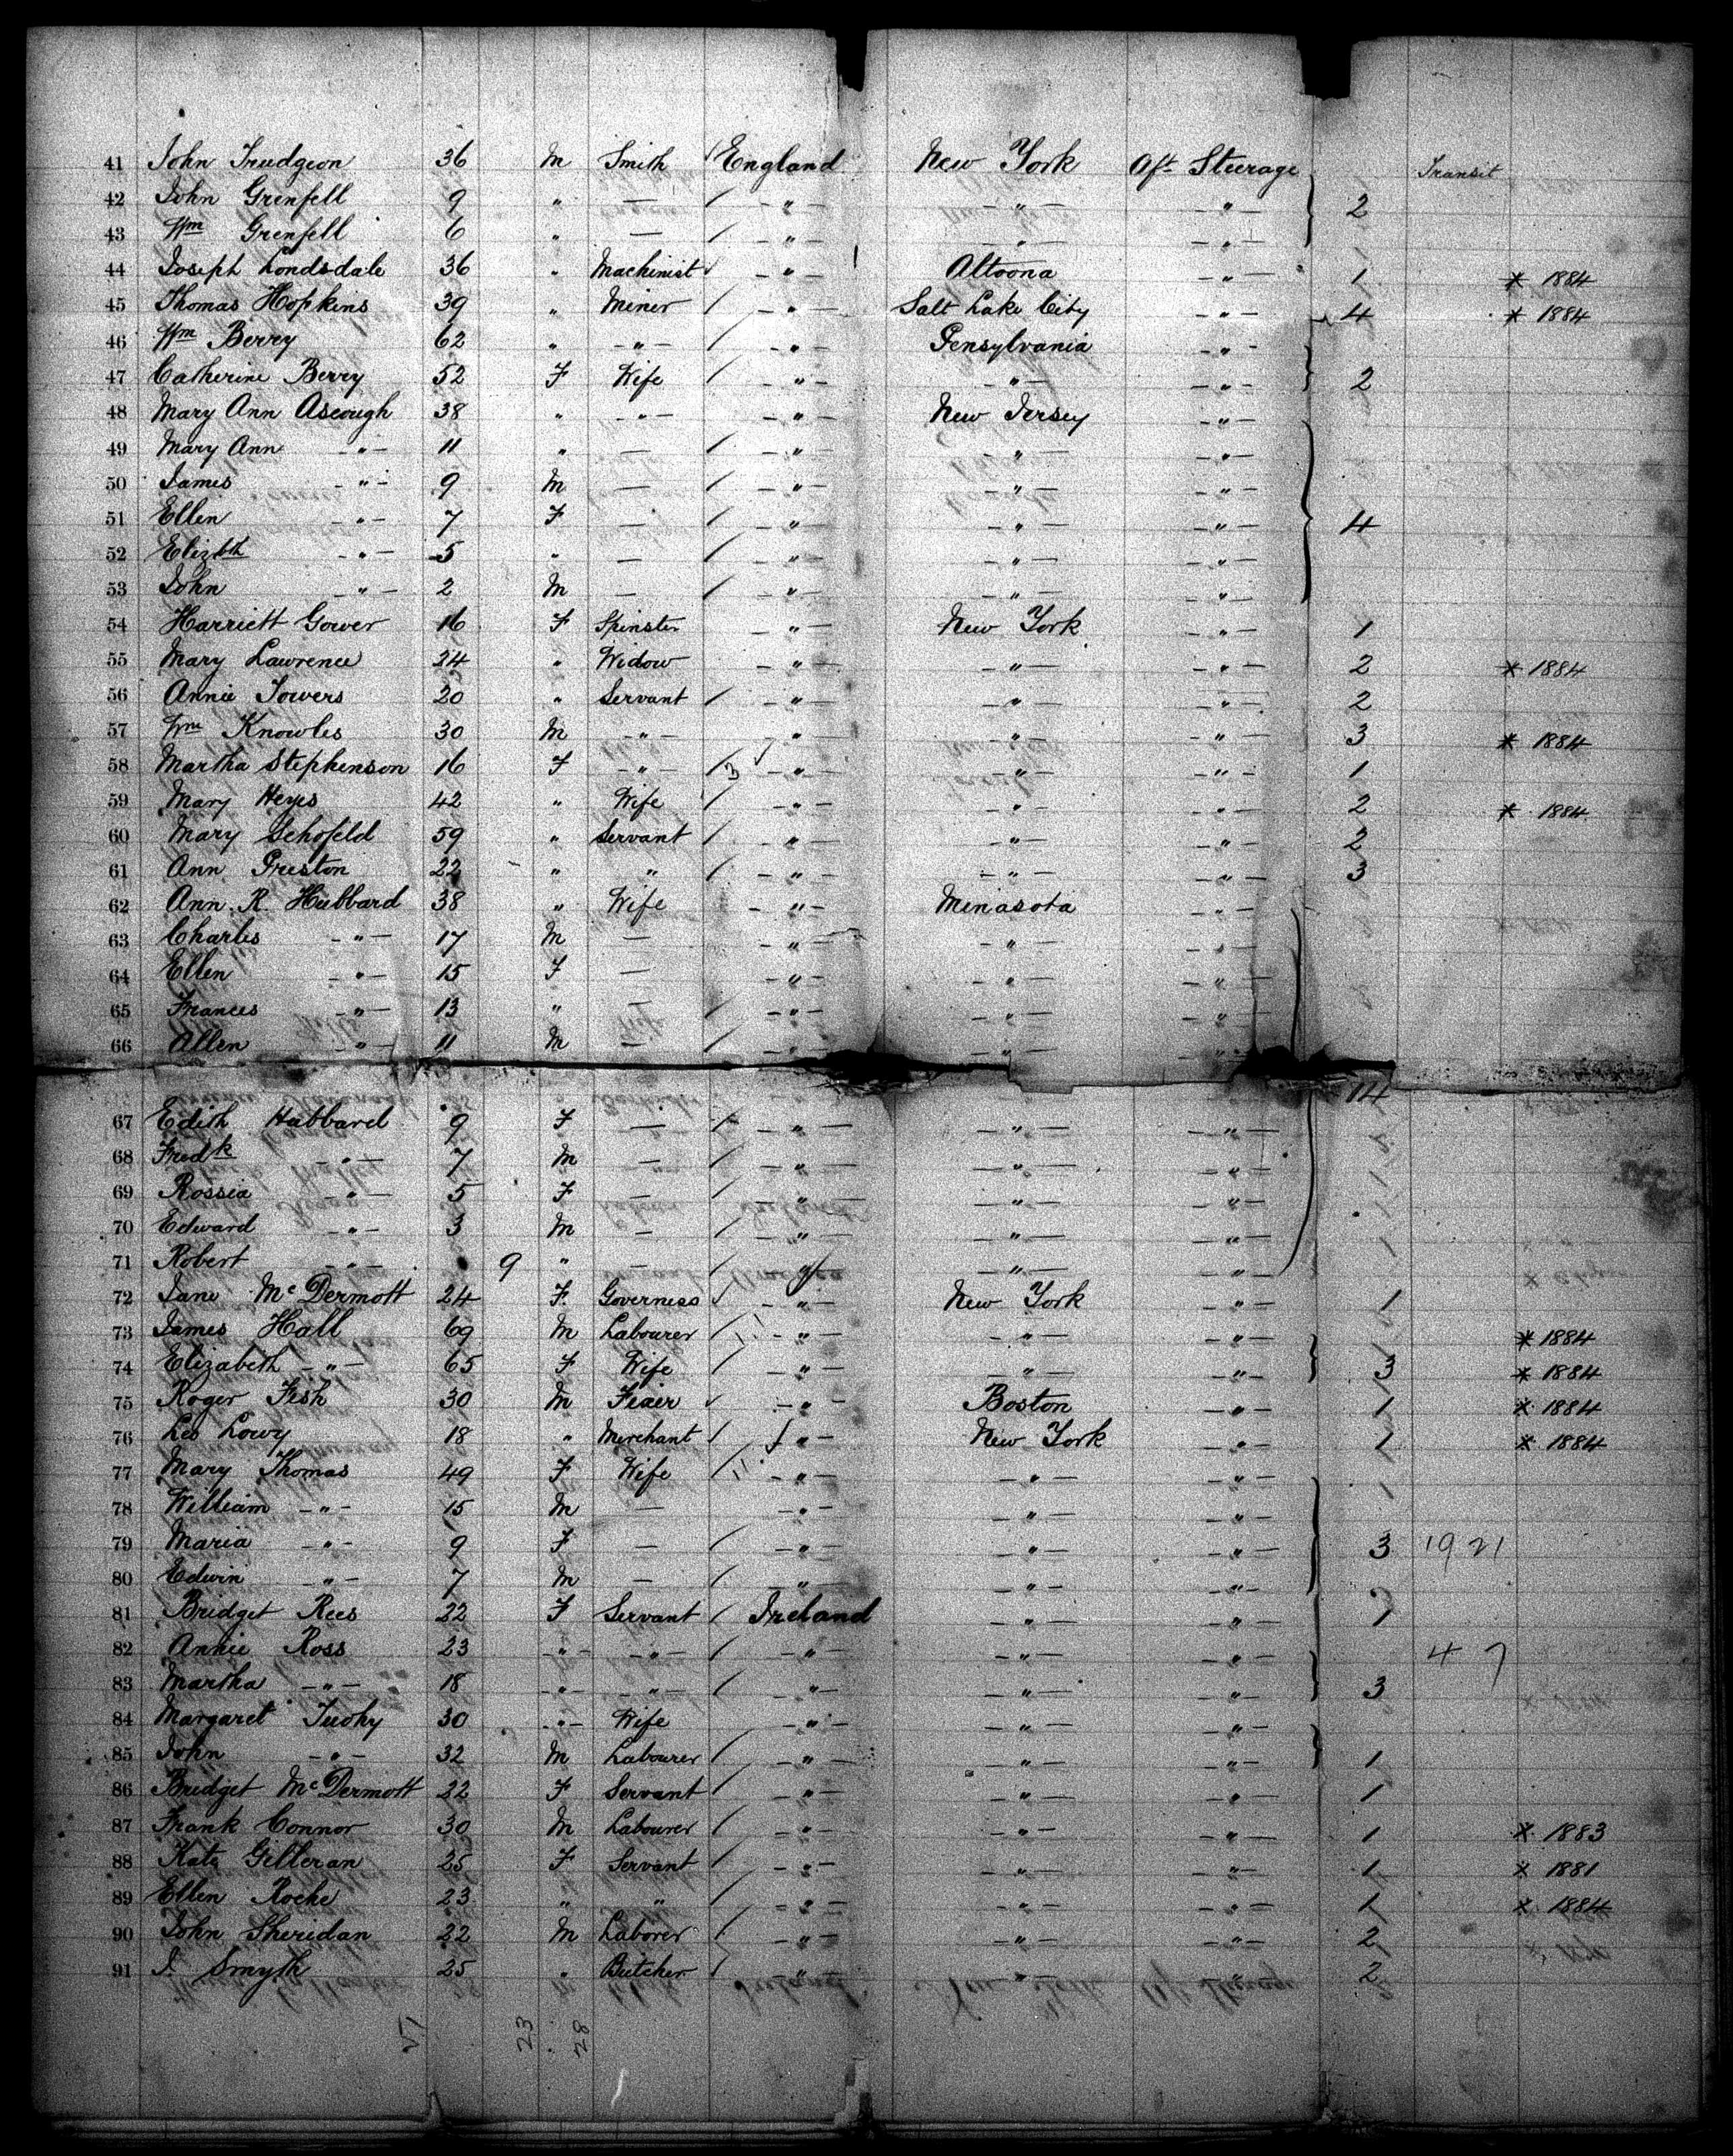 41 John Trudgeon 36 M Smith England New York Aft Steerage Transit
42 John Grenfell 9 " — " " " 2
43 Wm Grenfell 6 " — " " "
44 Joseph Londsdale 36 " Machinist " Altoona " 1 * 1884
45 Thomas Hopkins 39 " Miner " Salt Lake City " 4 * 1884
46 Wm Berry 62 " " " Pensylvania "
47 Catherine Berry 52 F Wife " " " 2
48 Mary Ann Ascough 38 " " " New Jersey "
49 Mary Ann " 11 " — " " "
50 James " 9 M — " " "
51 Ellen " 7 F — " " " 4
52 Elizbth " 5 " — " " "
53 John " 2 M — " " "
54 Harriett Gower 16 F Spinster " New York " 1
55 Mary Lawrence 24 " Widow " " " 2 * 1884
56 Annie Towers 20 " Servant " " " 2
57 Wm Knowles 30 M " " " " 3 * 1884
58 Martha Stephenson 16 F " 3 " " " 1
59 Mary Heyes 42 " Wife " " " 2 * 1884
60 Mary Schofeld 59 " Servant " " " 2
61 Ann Preston 22 " " " " " 3
62 Ann R. Hubbard 38 " Wife " Minasota "
63 Charles " 17 M — " " "
64 Ellen " 15 F — " " "
65 Frances " 13 " — " " "
66 Allen " 11 M — " " "
14
67 Edith Hubbard 9 F — " " "
68 Fredk " 7 M — " " "
69 Rossia " 5 F — " " "
70 Edward " 3 M — " " "
71 Robert " 9 " — " " "
72 Jane McDermott 24 F. Governess " New York " 1
73 James Hall 69 M Labourer " " " * 1884
74 Elizabeth " 65 F Wife " " " 3 * 1884
75 Roger Fish 30 M " Boston " 1 * 1884
76 Leo Lowy 18 " Merchant " New York " 1 * 1884
77 Mary Thomas 49 F Wife " " "
78 William " 15 M — " " "
79 Maria " 9 F — " " " 3 19 21
80 Edwin " 7 M — " " "
81 Bridget Rees 22 F Servant Ireland " " 1
82 Annie Ross 23 " " " " " 4 7
83 Martha " 18 " " " " " 3
84 Margaret Tuohy 30 " Wife " " "
85 John " 32 M Labourer " " " 1
86 Bridget McDermott 22 F Servant " " " 1
87 Frank Connor 30 M Labourer " " " 1 * 1883
88 Kate Gilleran 25 F Servant " " " 1 * 1881
89 Ellen Roche 23 " " " " " 1 * 1884
90 John Sheridan 22 M Laborer " " " 2
91 J. Smyth 25 " Butcher " " " 2
51 23 28